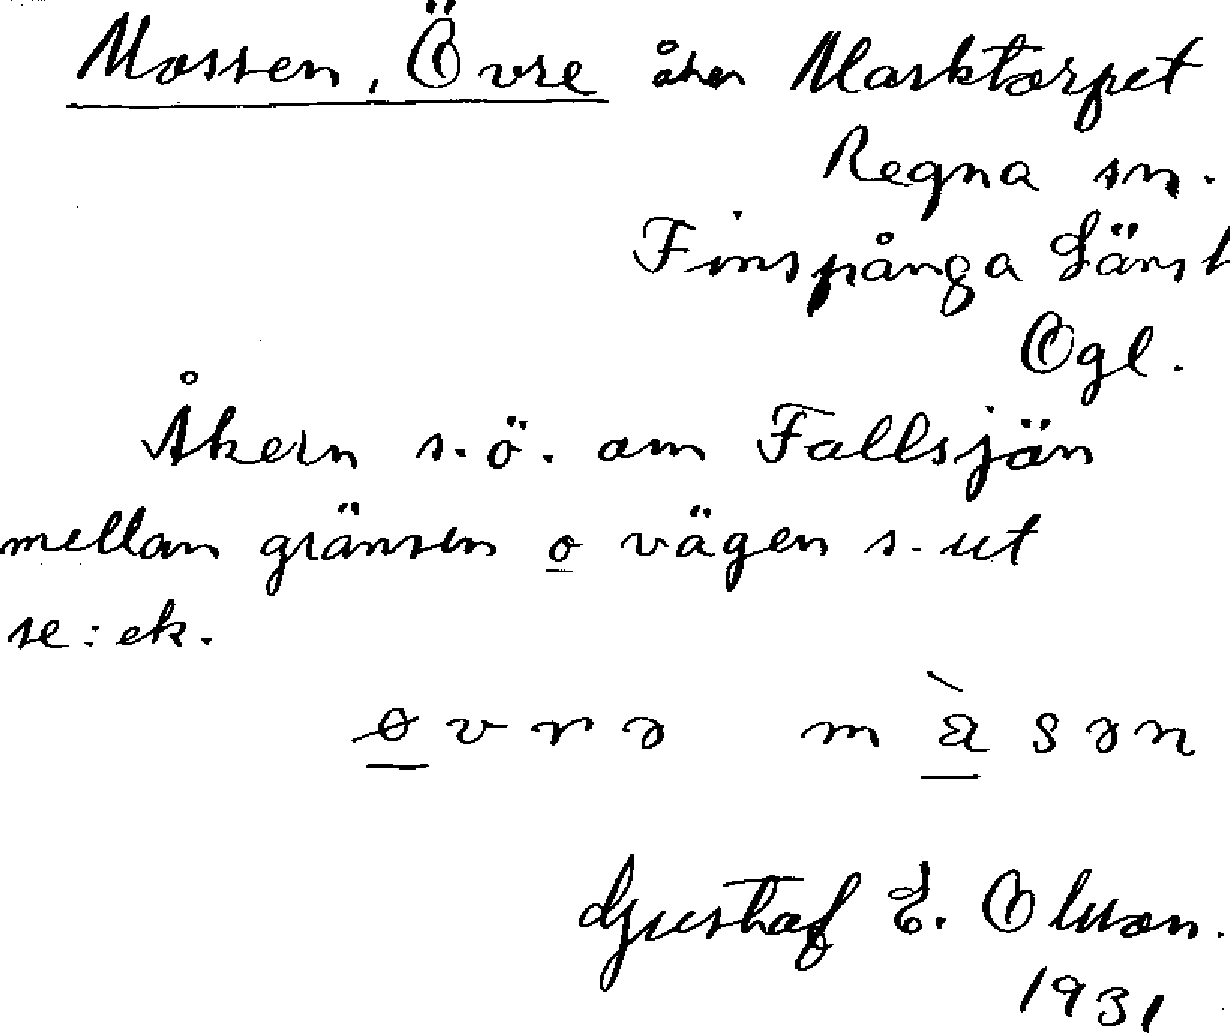 Mossen, Övre åker Marktorpet
Regna sn.
Finspånga Länsh
Ögl.
Åkern s.ö. om Fallsjön
mellan gränsen o vägen s. ut
se: ek.
øvrə m̀asən
Gustaf E. Olsson.
1931